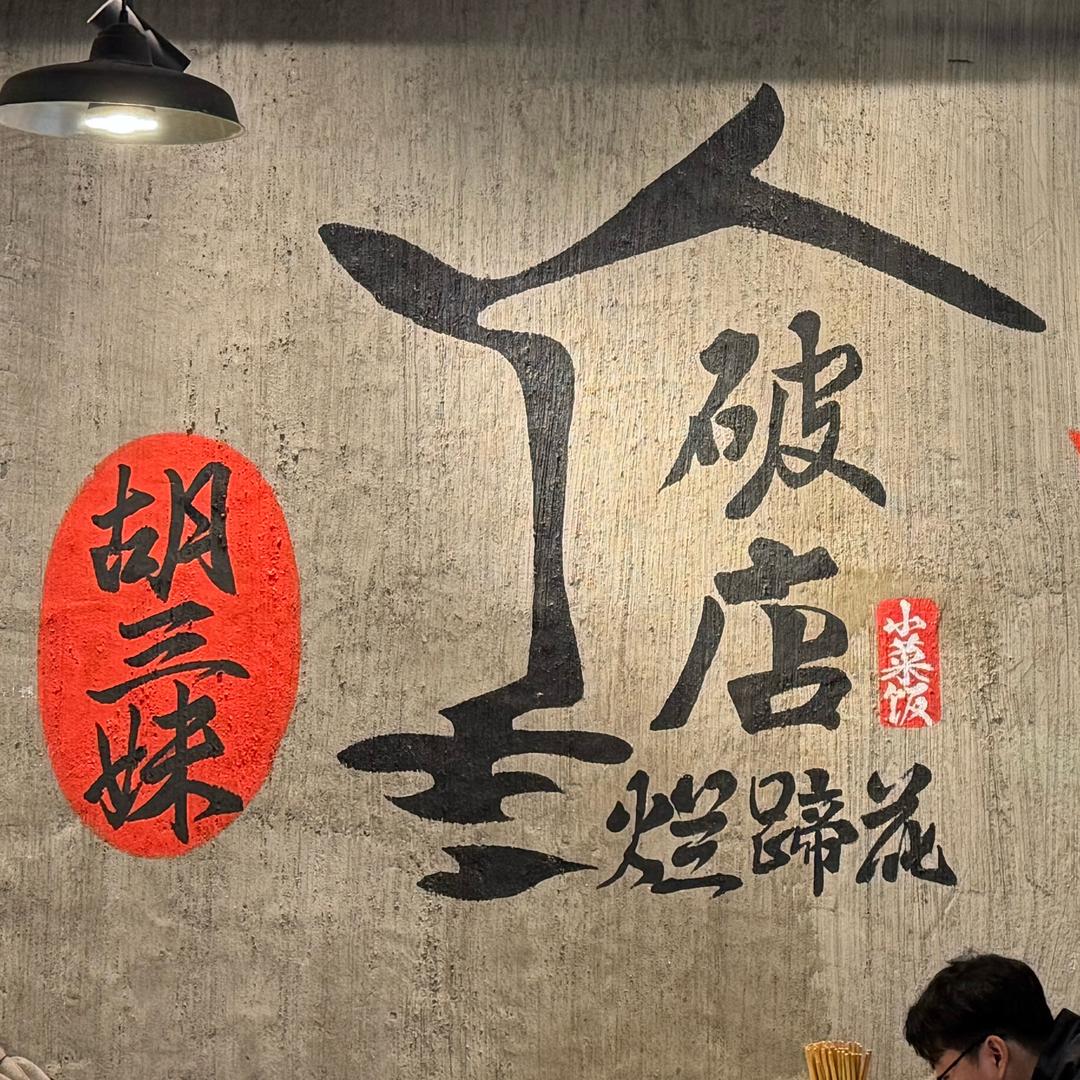 胡三妹
破店
小菜饭
烂蹄花